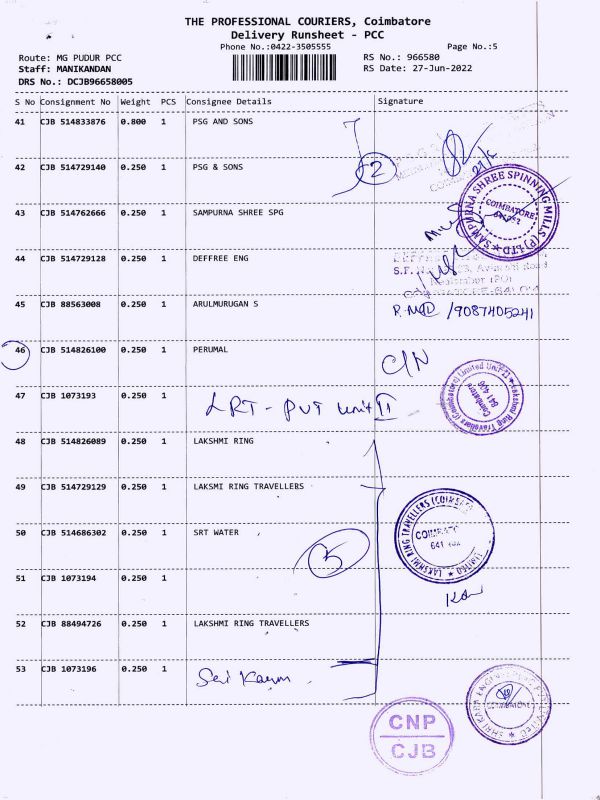 THE PROFESSIONAL COURIERS, Coimbatore
Delivery Runsheet - PCC
Phone No.:0422-3505555
Page No.:5
Route: MG PUDUR PCC
RS No.: 966580
Staff: MANIKANDAN
RS Date: 27-Jun-2022
DRS No.: DCJB96658005
S No Consignment No Weight PCS Consignee Details Signature
41 CJB 514833876 0.800 1 PSG AND SONS
2
27/6
42 CJB 514729140 0.250 1 PSG & SONS
43 CJB 514762666 0.250 1 SAMPURNA SHREE SPG
SAMPURNA SHREE SPINNING MILLS (P) LTD
COIMBATORE
44 CJB 514729128 0.250 1 DEFFREE ENG
45 CJB 88563008 0.250 1 ARULMURUGAN S
/9087405241
46 CJB 514826100 0.250 1 PERUMAL
C/N
47 CJB 1073193 0.250 1 LRT - PVT unit II
Lakshmi Ring Travellers (Coimbatore) Limited Unit
Coimbatore
48 CJB 514826089 0.250 1 LAKSHMI RING
49 CJB 514729129 0.250 1 LAKSMI RING TRAVELLERS
LAKSHMI RING TRAVELLERS
LIMITED
50 CJB 514686302 0.250 1 SRT WATER
5
51 CJB 1073194 0.250 1
52 CJB 88494726 0.250 1 LAKSHMI RING TRAVELLERS
53 CJB 1073196 0.250 1
CNP
CJB